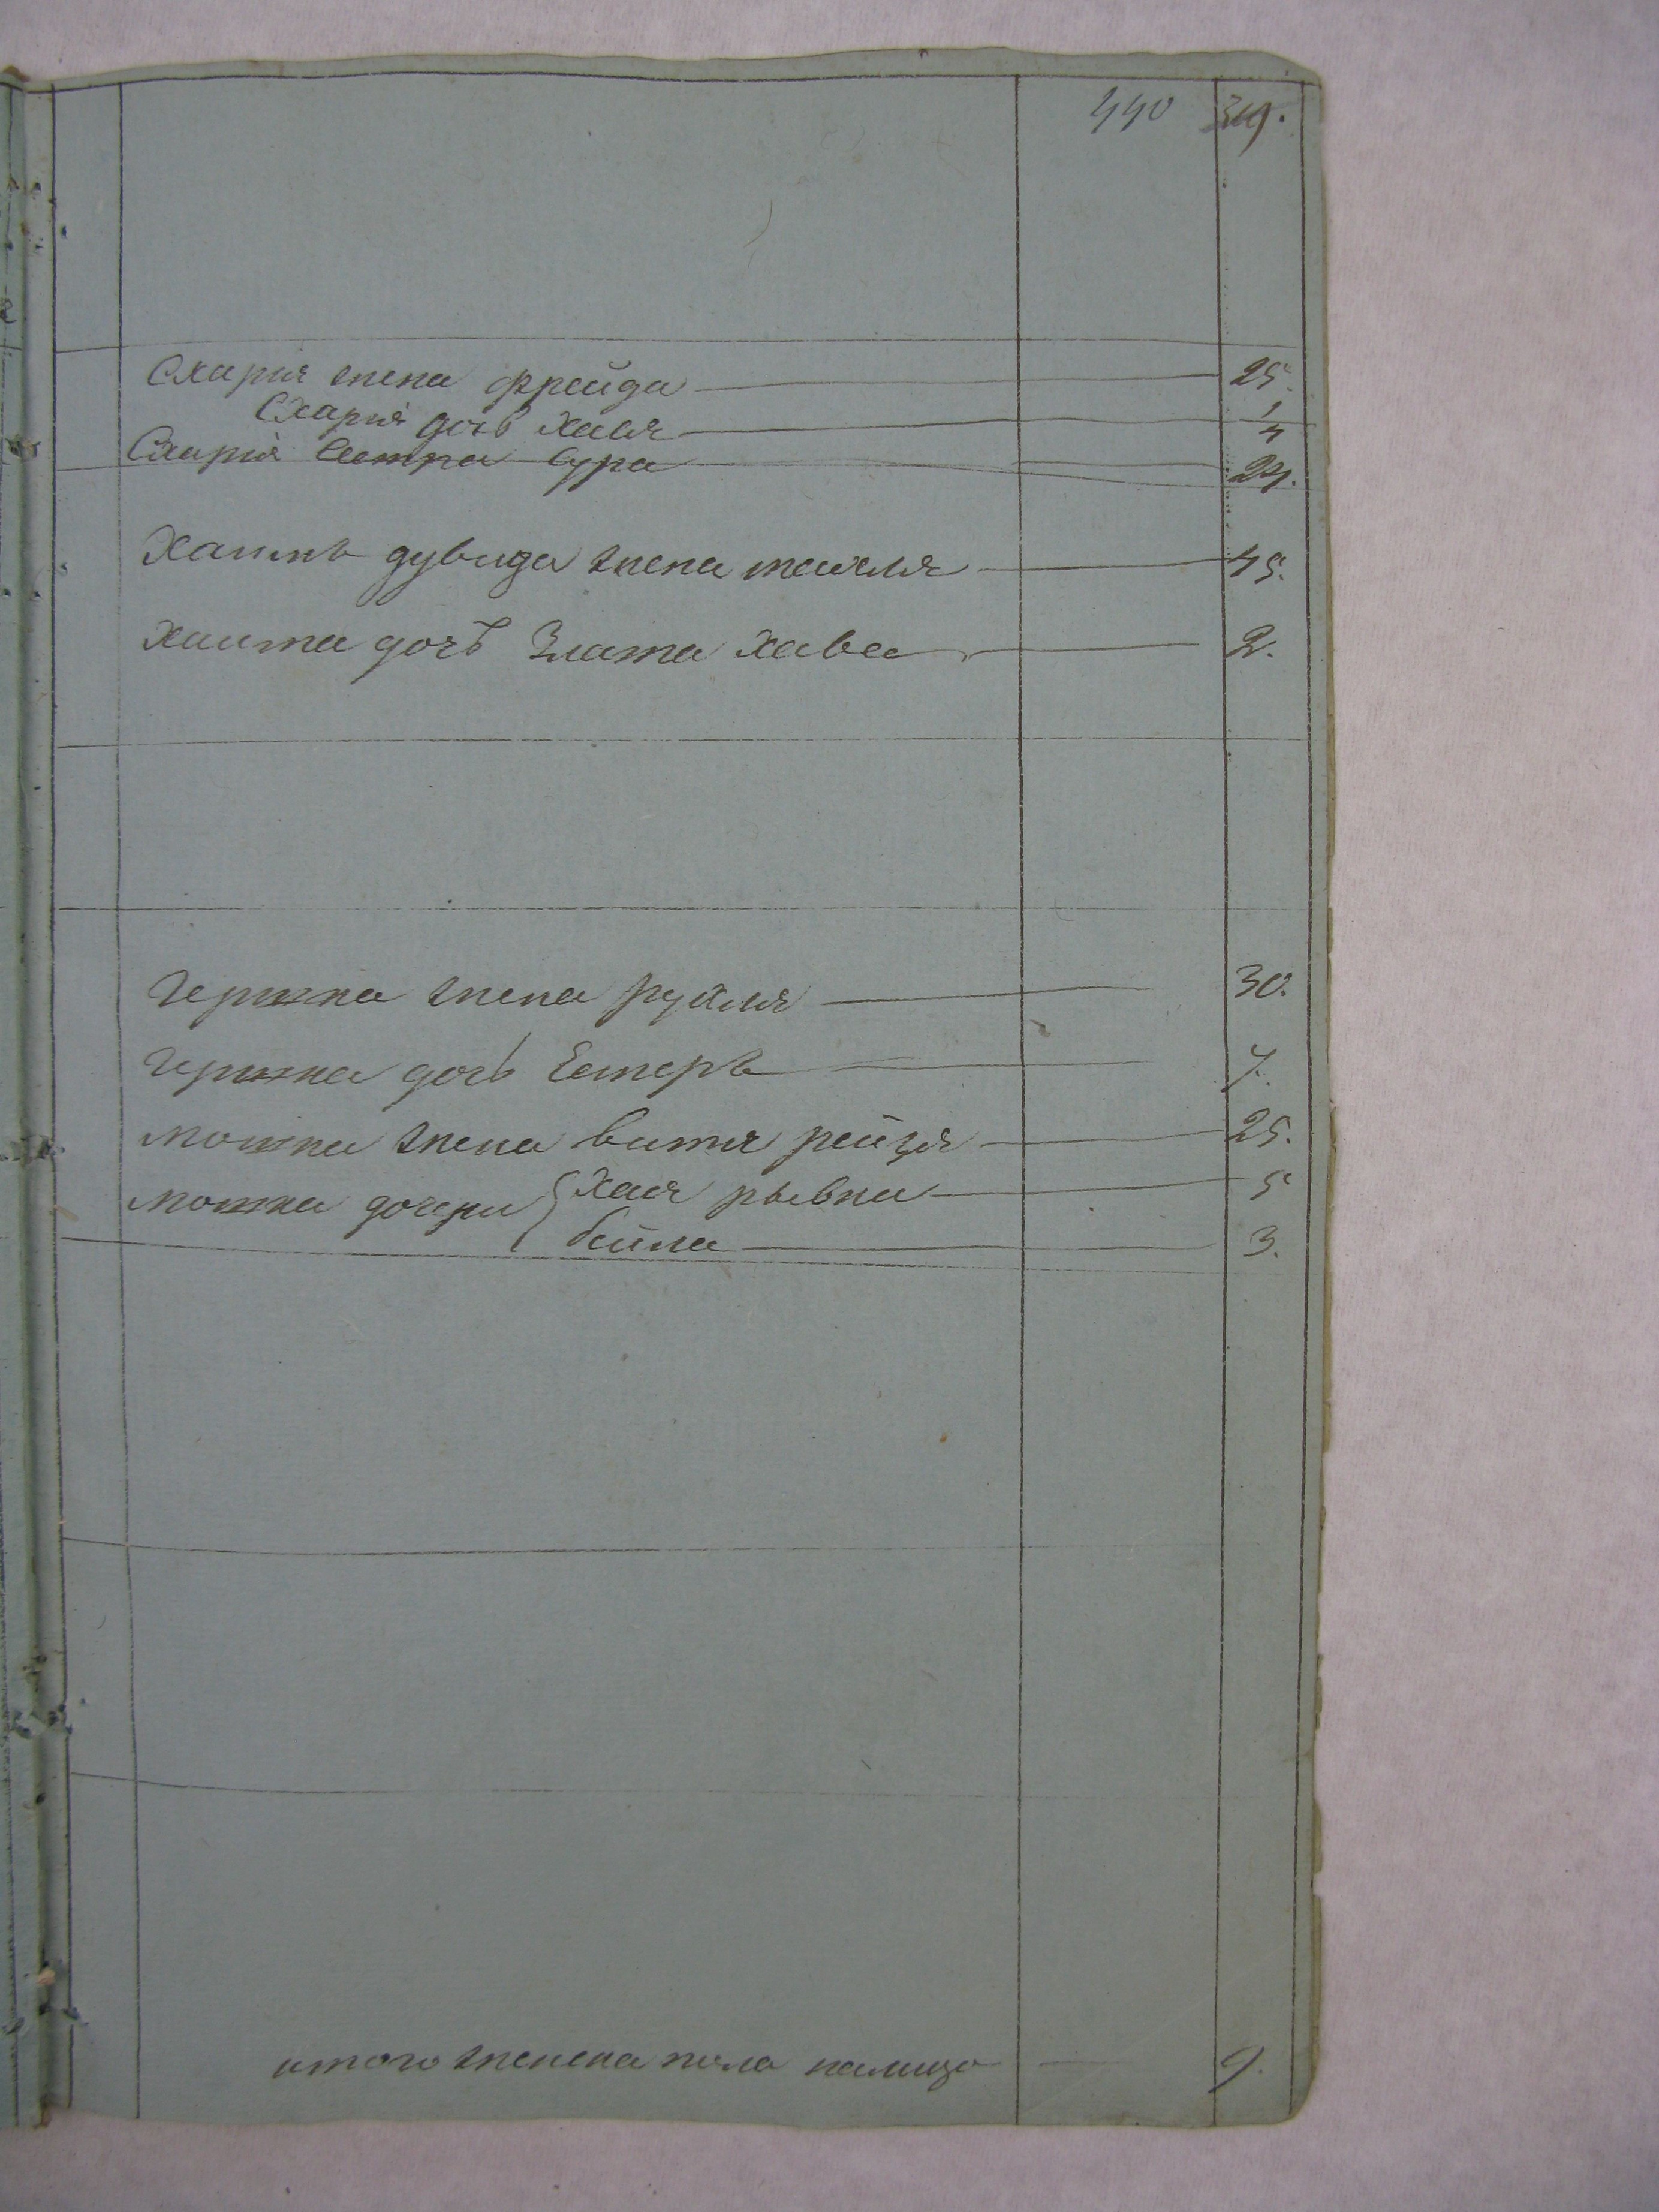 440 319.
Схария жена фрейда 25.
Схария дочь Хая 1/4
Схария Сестра Сура 24.
Хаимъ дувида жена 45.
Хаима дочь Злата Хава 2.
Гершка жена рухля 30.
Гершка дочь Естеръ 7.
мошка жена витя рейзя 25.
мошка дочери { Хая рывка 5
бейла 3.
итого женска пола налицо 9.